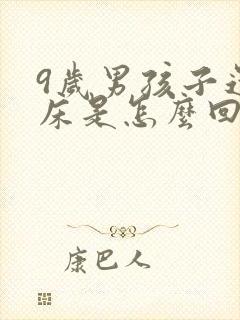 9歲男孩子
床是怎麼回
康巴人